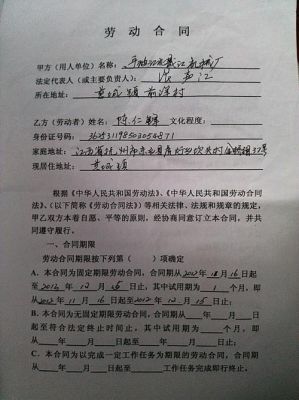 劳动合同
甲方（用人单位）名称：
法定代表人（或主要负责人）：
所在地址：黄城镇前洋村
乙方（劳动者）姓名：陈仁 文化程度：
身份证号码：
家庭地址：江西省抚州市东乡县
现居住地址：黄城镇
根据《中华人民共和国劳动法》、《中华人民共和国劳动合同
法》、（以下简称《劳动法》）等相关法律、法规和规章的规定，
甲乙双方本着自愿、平等的原则，经协商同意订立本合同，并共
同遵守履行。
一、合同期限
劳动合同期限按下列第（ ）项确定
A、本合同为固定期限劳动合同，合同期从2012年11月16日起
至2012年12月 日止，其中试用期为1个月，即
从2012年11月16日起至2012年12月15日止；
B、本合同为无固定期限劳动合同，合同期从 年 月 日
起至符合法定终止时止，其中试用期为 个月，即
从 年 月 日起至 年 月 日止；
C、本合同为以完成一定工作任务为期限的劳动合同，合同期
从 年 月 日起至 工作任务完成即行终止。